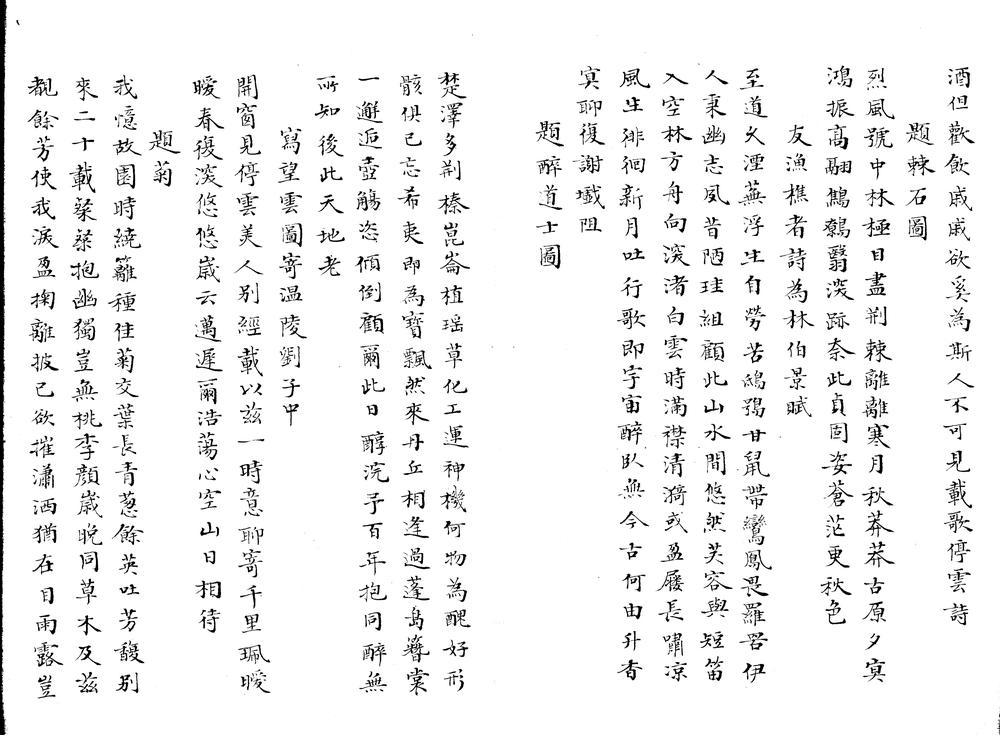 酒但歡飲戚戚欲奚為斯人不可見載歌停雲詩
題棘石圖
烈風號中林極目盡荆棘離離寒月秋莽莽古原夕寞
鴻振高翮鷦鷯翳深跡奈此貞固姿蒼茫更秋色
友漁樵者詩為林伯景賦
至道久湮蕪浮生自勞苦鴟鴞甘鼠帶鸞鳳畏羅罟伊
人秉幽志夙昔陋珪組顧此山水間悠然芙容與短笛
入空林方舟向深渚白雲時滿襟清漪或盈屨長嘯凉
風生徘徊新月吐行歌即宇宙醉臥無今古何由升杳
寞聊復謝巇阻
題醉道士圖
楚澤多荆榛崑崙植瑶草化工運神機何物為醜好形
骸俱已忘希夷即為寶飄然來丹丘相逢過蓬島簪裳
一邂逅壺觴恣傾倒顧爾此日醇浣予百年抱同醉無
所知後此天地老
寫望雲圖寄温陵劉子中
開窗見停雲美人別經載以兹一時意聊寄千里珮曖
曖春復深悠悠歲云邁遲爾浩蕩心空山日相待
題菊
我憶故園時繞籬種佳菊交葉長青葱餘英吐芳馥别
來二十載粲粲抱幽獨豈無桃李顔歲晚同草木及兹
覩餘芳使我淚盈掬離披已欲摧瀟洒猶在目雨露豈